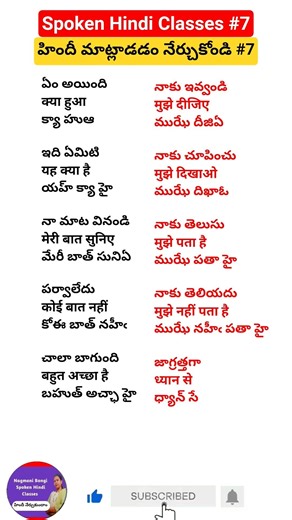 Spoken Hindi Classes #7
హిందీ మాట్లాడడం నేర్చుకోండి #7
ఏం అయింది
क्या हुआ
క్యా హుఆ
ఇది ఏమిటి
यह क्या है
యహ్ క్యా హై
నా మాట వినండి
मेरी बात सुनिए
మేరీ బాత్ సునిఏ
పర్వాలేదు
कोई बात नहीं
కోఈ బాత్ నహీఁ
చాలా బాగుంది
बहुत अच्छा है
బహుత్ అచ్ఛా హై
నాకు ఇవ్వండి
मुझे दीजिए
ముఝే దీజిఏ
నాకు చూపించు
मुझे दिखाओ
ముఝే దిఖాఓ
నాకు తెలుసు
मुझे पता है
ముఝే పతా హై
నాకు తెలియదు
मुझे नहीं पता है
ముఝే నహీఁ పతా హై
జాగ్రత్తగా
ध्यान से
ధ్యాన్ సే
Nagmani Bangi
Spoken Hindi
Classes
SUBSCRIBED